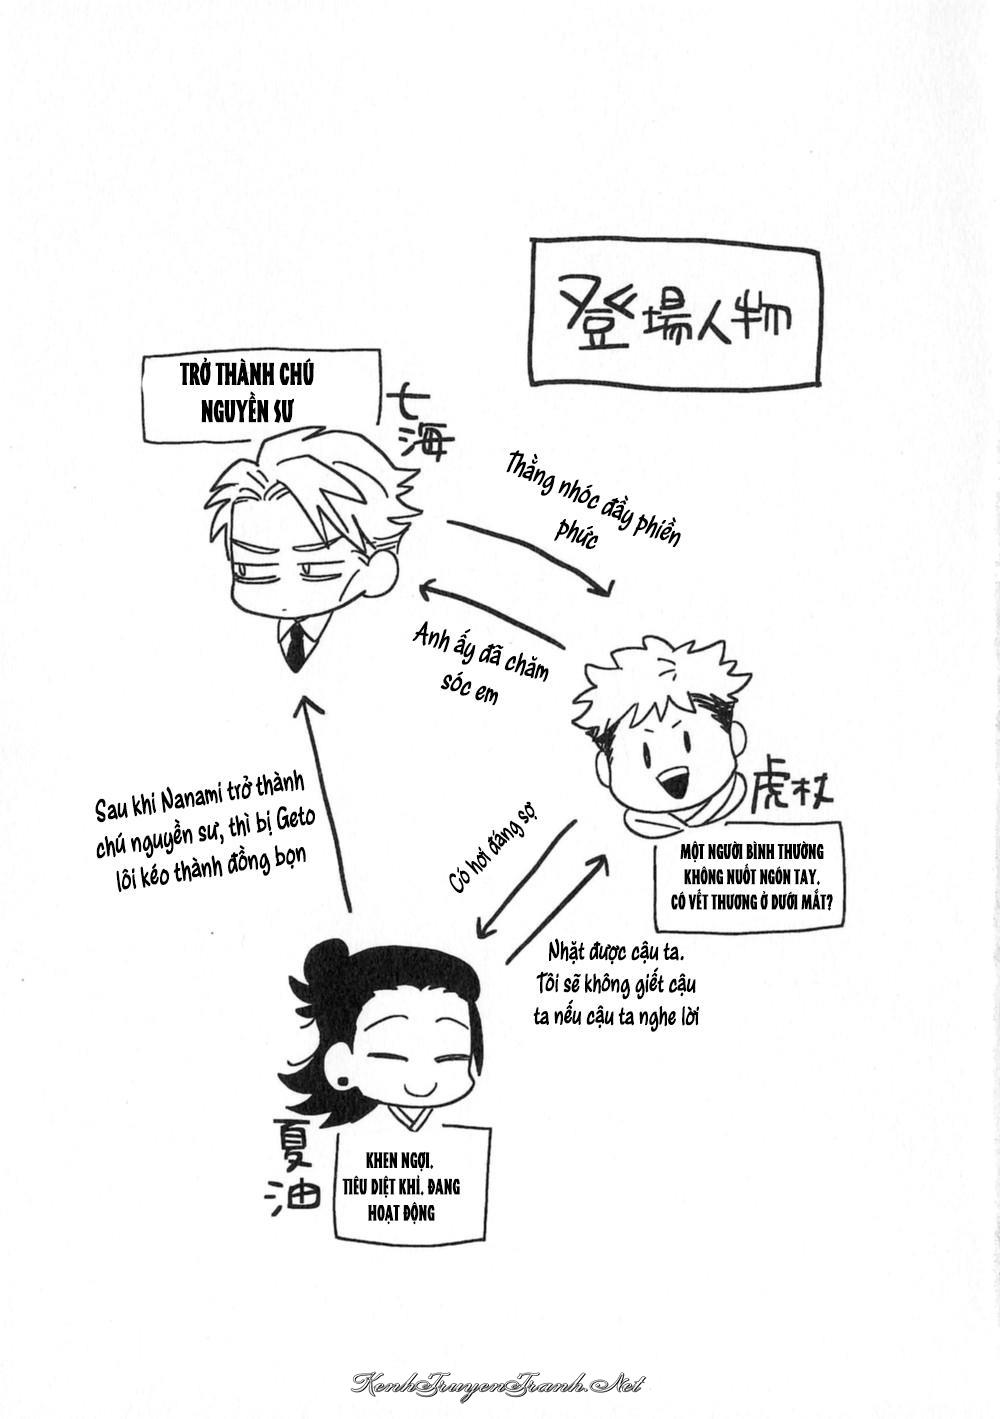 登場人物
TRỞ THÀNH CHÚ
NGUYỀN SƯ
七海
Thằng nhóc đầy phiền
phức
Anh ấy đã chăm
sóc em
虎杖
MỘT NGƯỜI BÌNH THƯỜNG
KHÔNG NUỐT NGÓN TAY.
CÓ VẾT THƯƠNG Ở DƯỚI MẮT?
Sau khi Nanami trở thành
chú nguyền sư, thì bị Geto
lôi kéo thành đồng bọn
Có hơi đáng sợ
Nhặt được cậu ta.
Tôi sẽ không giết cậu
ta nếu cậu ta nghe lời
夏油
KHEN NGỢI.
TIÊU DIỆT KHỈ. ĐANG
HOẠT ĐỘNG
KenhTruyenTranh.Net